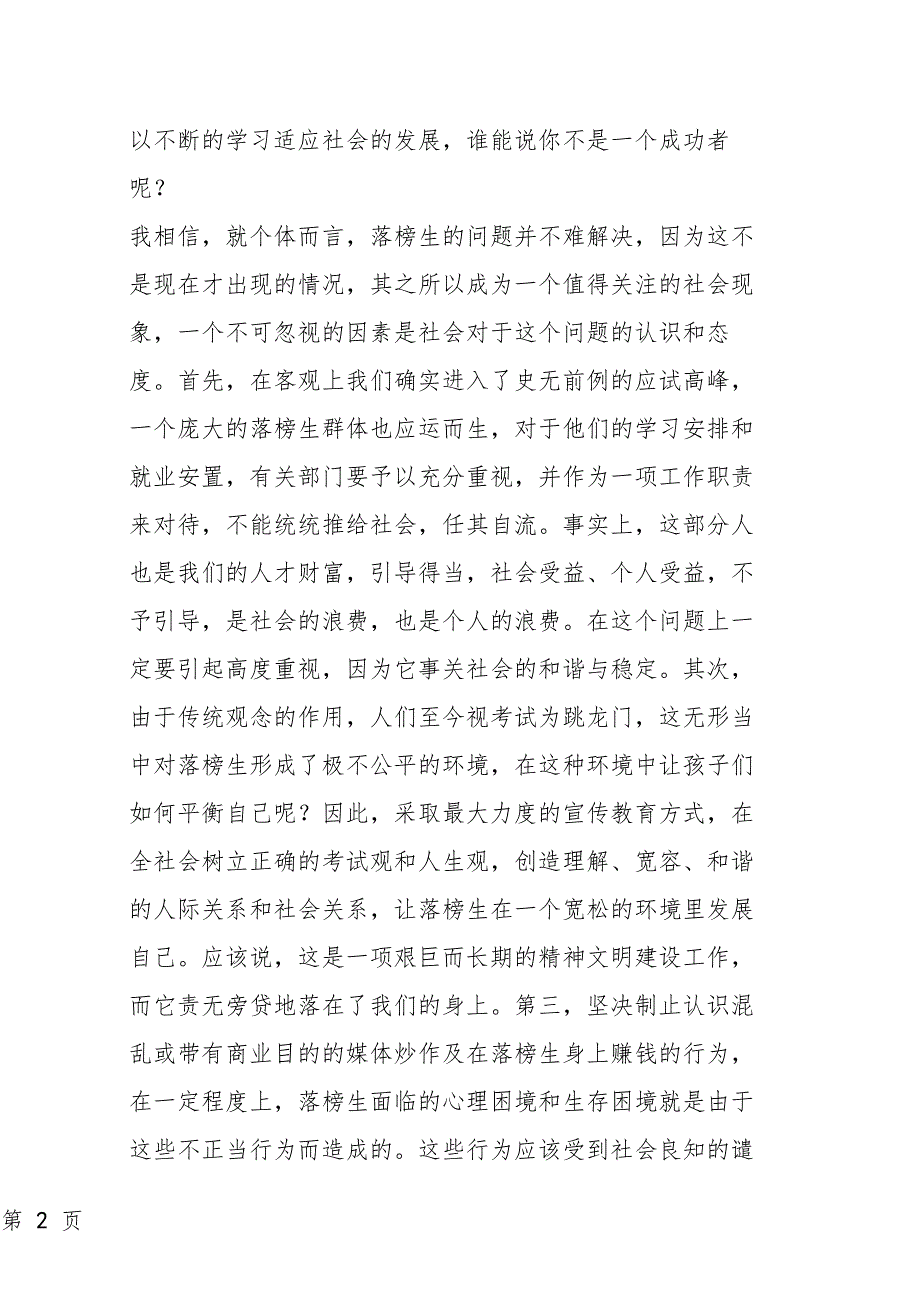 以不断的学习适应社会的发展，谁能说你不是一个成功者
呢？
我相信，就个体而言，落榜生的问题并不难解决，因为这不
是现在才出现的情况，其之所以成为一个值得关注的社会现
象，一个不可忽视的因素是社会对于这个问题的认识和态
度。首先，在客观上我们确实进入了史无前例的应试高峰，
一个庞大的落榜生群体也应运而生，对于他们的学习安排和
就业安置，有关部门要予以充分重视，并作为一项工作职责
来对待，不能统统推给社会，任其自流。事实上，这部分人
也是我们的人才财富，引导得当，社会受益、个人受益，不
予引导，是社会的浪费，也是个人的浪费。在这个问题上一
定要引起高度重视，因为它事关社会的和谐与稳定。其次，
由于传统观念的作用，人们至今视考试为跳龙门，这无形当
中对落榜生形成了极不公平的环境，在这种环境中让孩子们
如何平衡自己呢？因此，采取最大力度的宣传教育方式，在
全社会树立正确的考试观和人生观，创造理解、宽容、和谐
的人际关系和社会关系，让落榜生在一个宽松的环境里发展
自己。应该说，这是一项艰巨而长期的精神文明建设工作，
而它责无旁贷地落在了我们的身上。第三，坚决制止认识混
乱或带有商业目的的媒体炒作及在落榜生身上赚钱的行为，
在一定程度上，落榜生面临的心理困境和生存困境就是由于
这些不正当行为而造成的。这些行为应该受到社会良知的谴
第 2 页